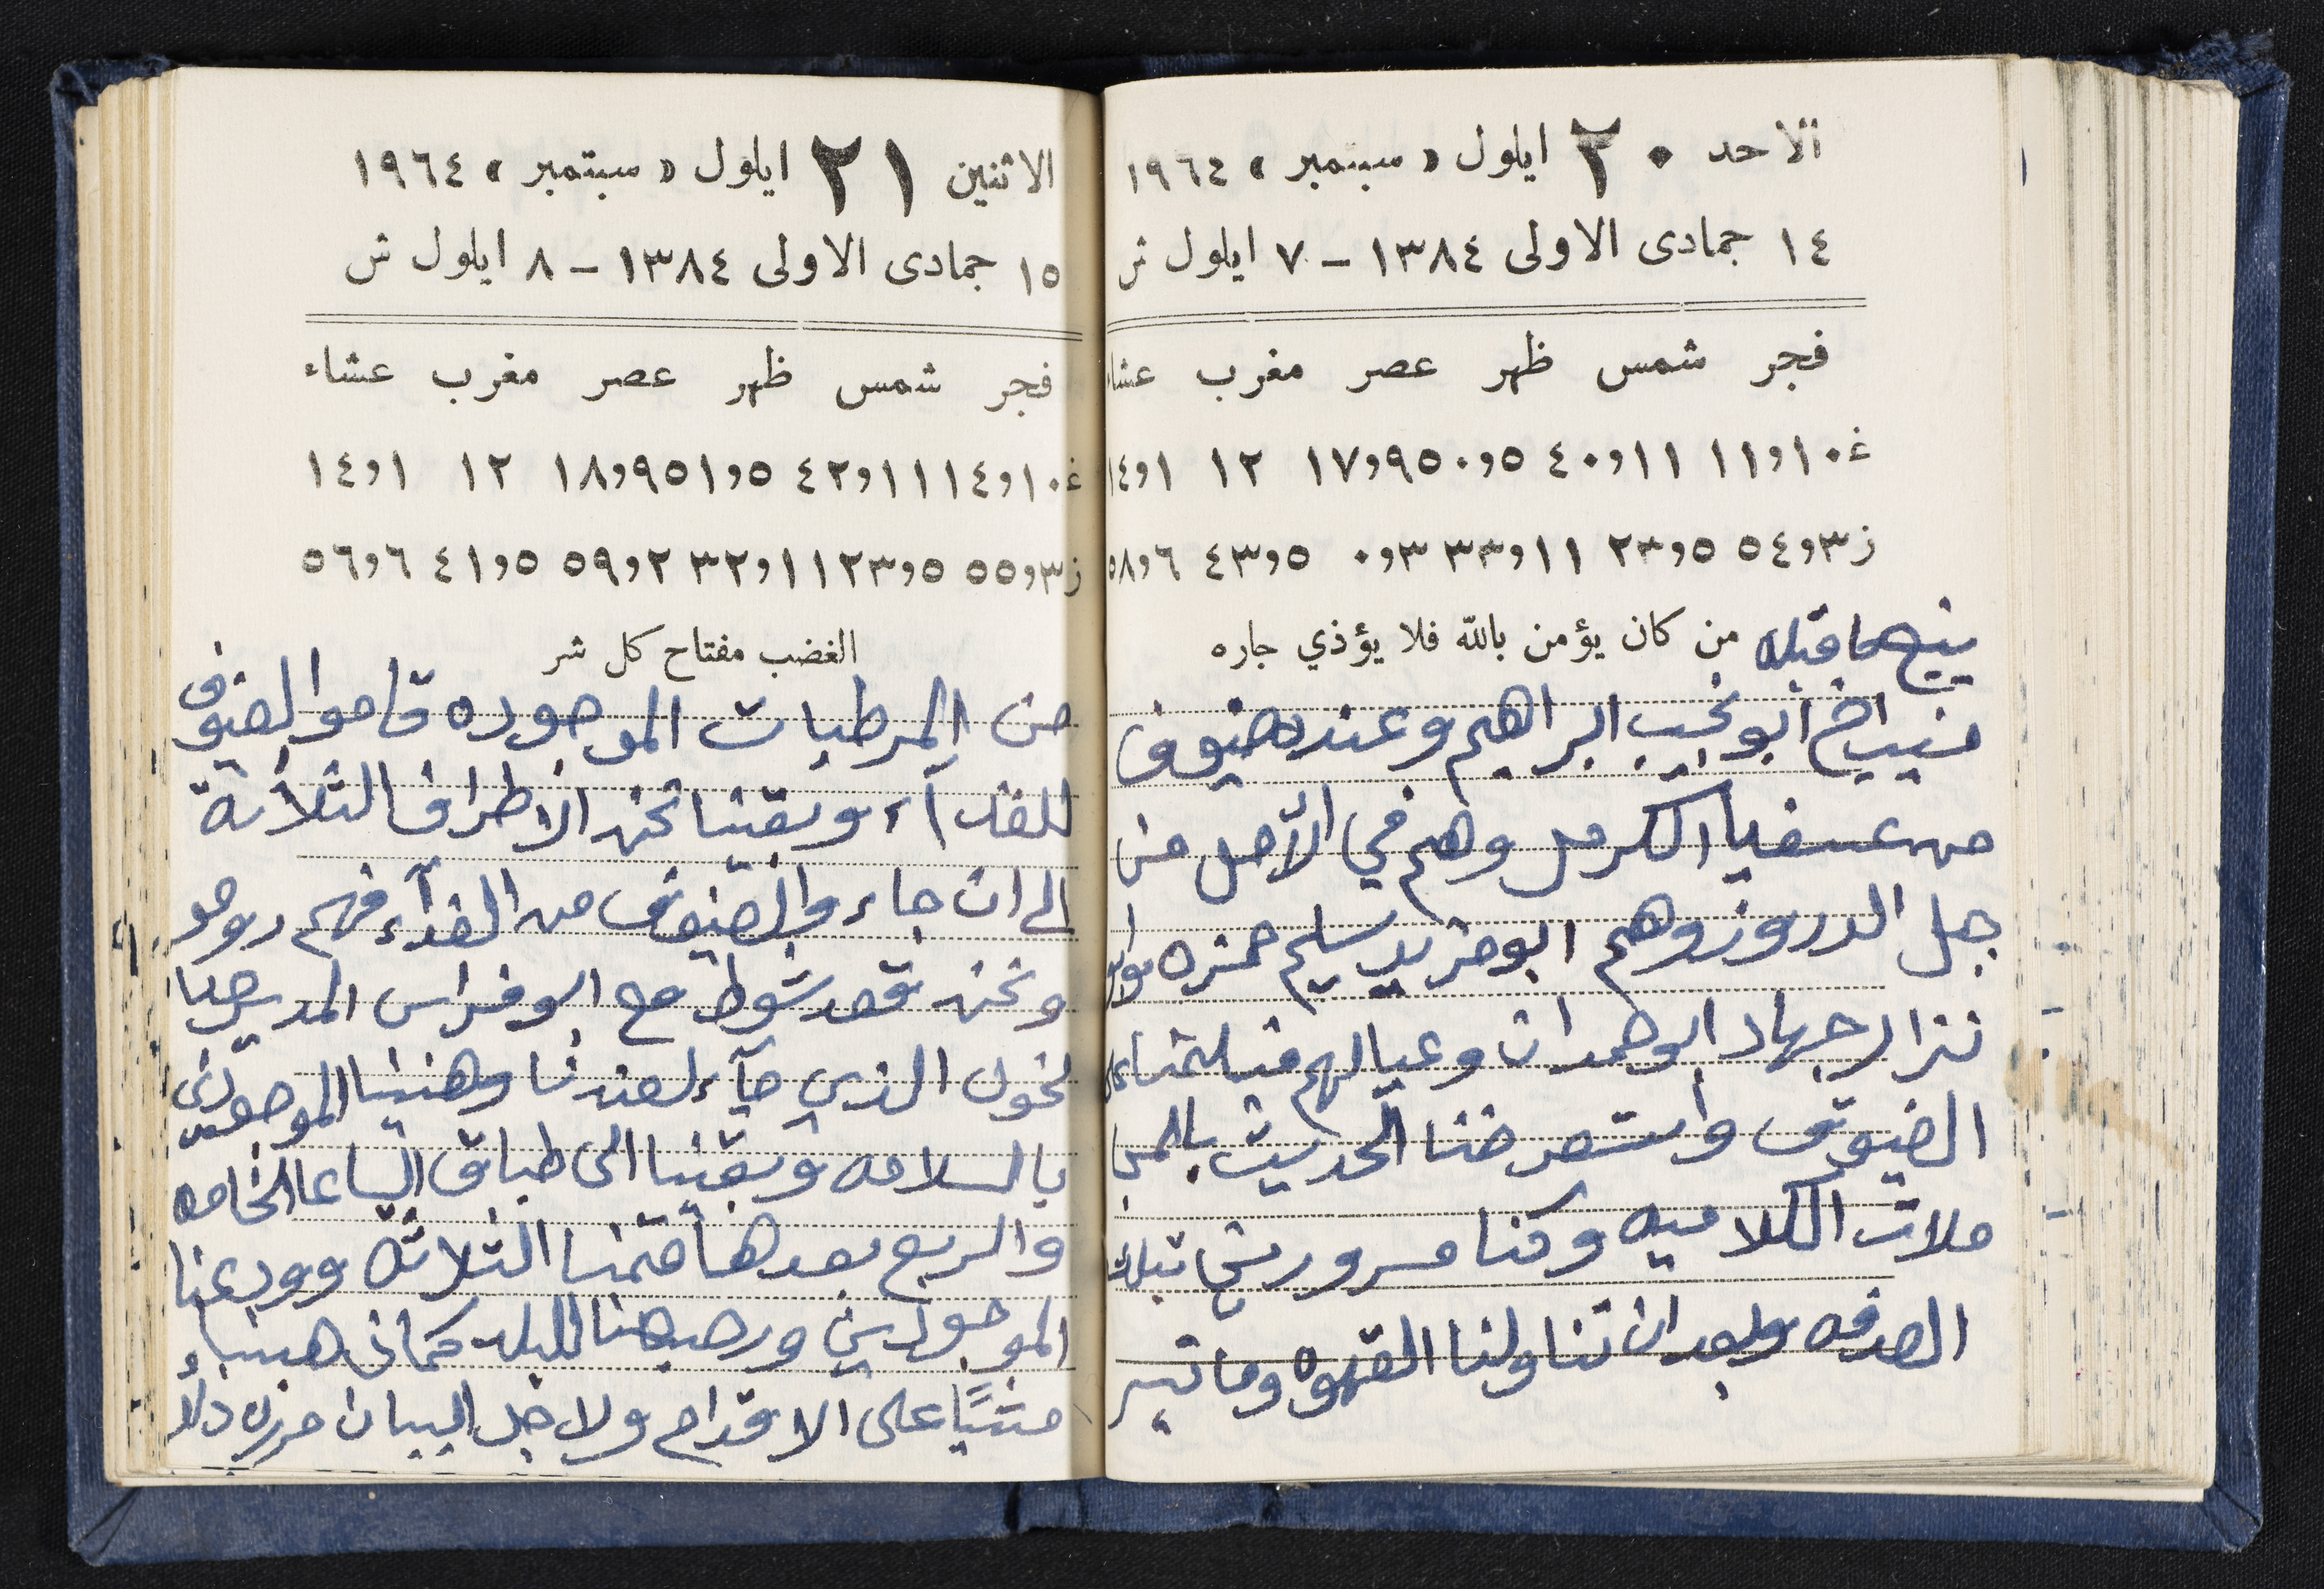 الاحد ٢٠ ايلول « سبتمبر » ١٩٦٤
١٤ جمادى الاولى ١٣٨٤ - ٧ ايلول ش
فجر شمس ظهر عصر مغرب عشاء
غ١٠و١١ ١١و٤٠ ٥و٥٠ ٩و١٧ ١٢ ١و١٤
ز٣و٥٤ ٥و٢٣ ١١و٣٣ ٣و٠ ٥و٤٣ ٦و٥٨
من كان يؤمن بالله فلا يؤذي جاره
يتبع ما قبله
ابو نجيب ابراهيم وعنده ضيوف
من عسفيا الكرمل وهم في الأصل من
جبل الدروز وهم ابو مزيد سليم حمزه وابو
نزار جهاد ابو حمدان وعيالهم فسلمنا على
الضيوف واستعرضنا الحديث بالمجا
ملات الكلاميه وكنا مسرورين بتلك
الصدفه وبعد ان تناولنا القهوه وما تيسر
الاثنين ٢١ ايلول « سبتمبر » ١٩٦٤
١٥ جمادى الاولى ١٣٨٤ - ٨ ايلول ش
فجر شمس ظهر عصر مغرب عشاء
غ١٠و١٤ ١١و٤٢ ٥و٥١ ٩و١٨ ١٢ ١و١٤
ز٣و٥٥ ٥و٢٣ ١١و٣٢ ٢و٥٩ ٥و٤١ ٦و٥٦
الغضب مفتاح كل شر
من المرطبات الموجوده قاموا الضيوف
للغدآء وبقينا نحن الاطراف الثلاثة
الى ان جاءوا الضيوف من الغدآء فهم روحو
ونحن نقعد شوط مع ابو فراس المدير
الذي جآء لعندنا وهنينا الموجودين
بالسلامه وبقينا الى طباق الساعا الخامسه
والربع بعدها قمنا الثلاثه وودعنا
الموجودين ورجعنا للبلد كمان
مشيًا على الاقدام ولاجل البيان حرره